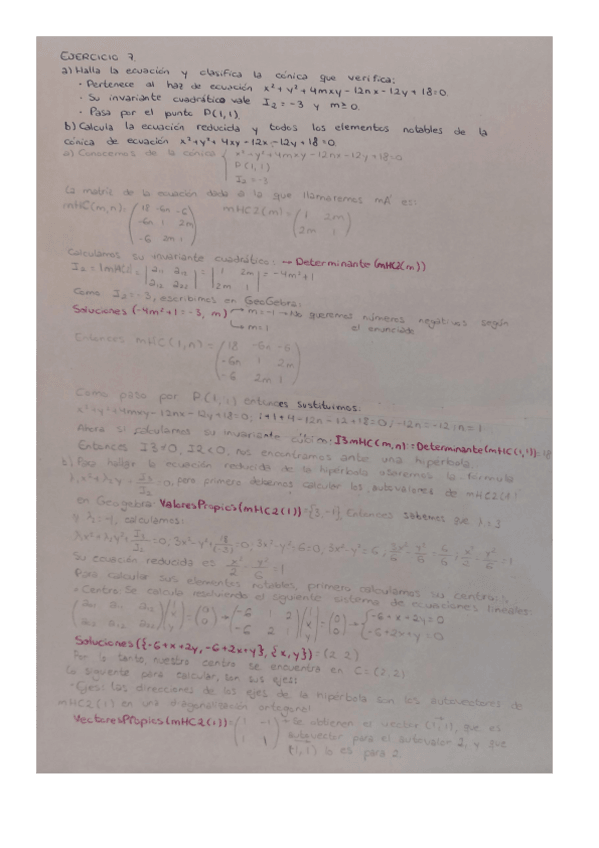 EJERCICIO 7.
a) Halla la ecuación y clasifica la cónica que verifica:
• Pertenece al haz de ecuación x²+y²+4mxy-12nx-12y+18=0.
• Su invariante cuadrático vale I₂=-3 y m≥0.
• Pasa por el punto P(1,1).
b) Calcula la ecuación reducida y todos los elementos notables de la
cónica de ecuación x²+y²+4xy-12x-12y+18=0.
a) Conocemos de la cónica { x²+y²+4mxy-12nx-12y+18=0
P(1,1)
I₂=-3
La matriz de la ecuación dada a la que llamaremos mA es:
mHC(m,n): (18 -6n -6
-6n 1 2m
-6 2m 1) mHC2(m)=(1 2m
2m 1)
Calculamos su invariante cuadrático: → Determinante(mHC2(m))
I₂=|mHC11|=|a₁₁ a₁₂
a₁₂ a₂₂|=|1 2m
2m 1|=-4m²+1
Como I₂=-3, escribimos en GeoGebra:
Soluciones(-4m²+1=-3, m) → m=-1 → No queremos números negativos según
el enunciado
→ m=1
Entonces mHC(1,n)=(18 -6n -6
-6n 1 2m
-6 2m 1)
Como pasa por P(1,1) entonces sustituimos:
x²+y²+4mxy-12nx-12y+18=0; 1+1+4-12n-12+18=0; -12n=-12; n=1
Ahora sí calculamos su invariante cúbico: I3mHC(m,n):=Determinante(mHC(1,1)):
Entonces I3≠0, I2<0, nos encontramos ante una hipérbola.
b) Para hallar la ecuación reducida de la hipérbola usaremos la fórmula
λ₁x²+λ₂y²+I₃/I₂=0, pero primero debemos calcular los autovalores de mHC2(1)
en Geogebra: ValoresPropios(mHC2(1))={3,-1}. Entonces sabemos que λ₁=3
y λ₂=-1, calculamos:
λ₁x²+λ₂y²+I₃/I₂=0; 3x²-y²+18/(-3)=0; 3x²-y²-6=0; 3x²-y²=6; 3x²/6-y²/6=6/6; x²/2-y²/6=1
Su ecuación reducida es x²/2-y²/6=1
Para calcular sus elementos notables, primero calculamos su centro:
• Centro: Se calcula resolviendo el siguiente sistema de ecuaciones lineales:
(a₀₁ a₁₁ a₁₂
a₀₂ a₁₂ a₂₂)(1
x
y)=(0
0) → (-6 1 2
-6 2 1)(1
x
y)=(0
0) → {-6+x+2y=0
-6+2x+y=0
Soluciones({-6+x+2y,-6+2x+y},{x,y})=(2 2)
Por lo tanto, nuestro centro se encuentra en C=(2,2)
Lo siguiente para calcular, son sus ejes:
• Ejes: Las direcciones de los ejes de la hipérbola son los autovectores de
mHC2(1) en una diagonalización ortogonal
VectoresPropios(mHC2(1))=(1 -1
1 1) → Se obtienen el vector (1,1), que es
autovector para el autovalor 2, y que
(1,1) lo es para 2.